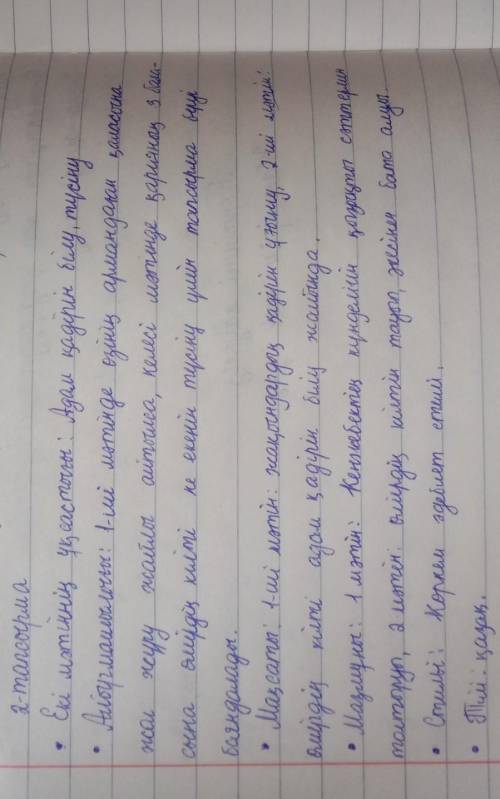 2-тапсырма
• Екі мәтіннің ұқсастығы: Адам қадірін білу, түсіну
• Айырмашылығы: 1-ші мәтінде өзінің армандаған қаласына
жол жүру жайлы айтылса, келесі мәтінде қарияның 3 бала-
сына өмірдің кілті не екенін түсіну үшін тапсырма беуі
баяндалады.
• Мақсаты: 1-ші мәтін: жақындардың қадірін ұғыну, 2-ші мәтін:
өмірдің кілті адам қадірін білу жайында.
• Мазмұны: 1 мәтін: Кенжебектің күнделігін қызықты сәттерін
толтыруы, 2 мәтін: өмірдің кілтін тауып, әкеінен бата алуы.
• Стилі: Көркем әдебиет стилі.
• Тілі: қазақ.